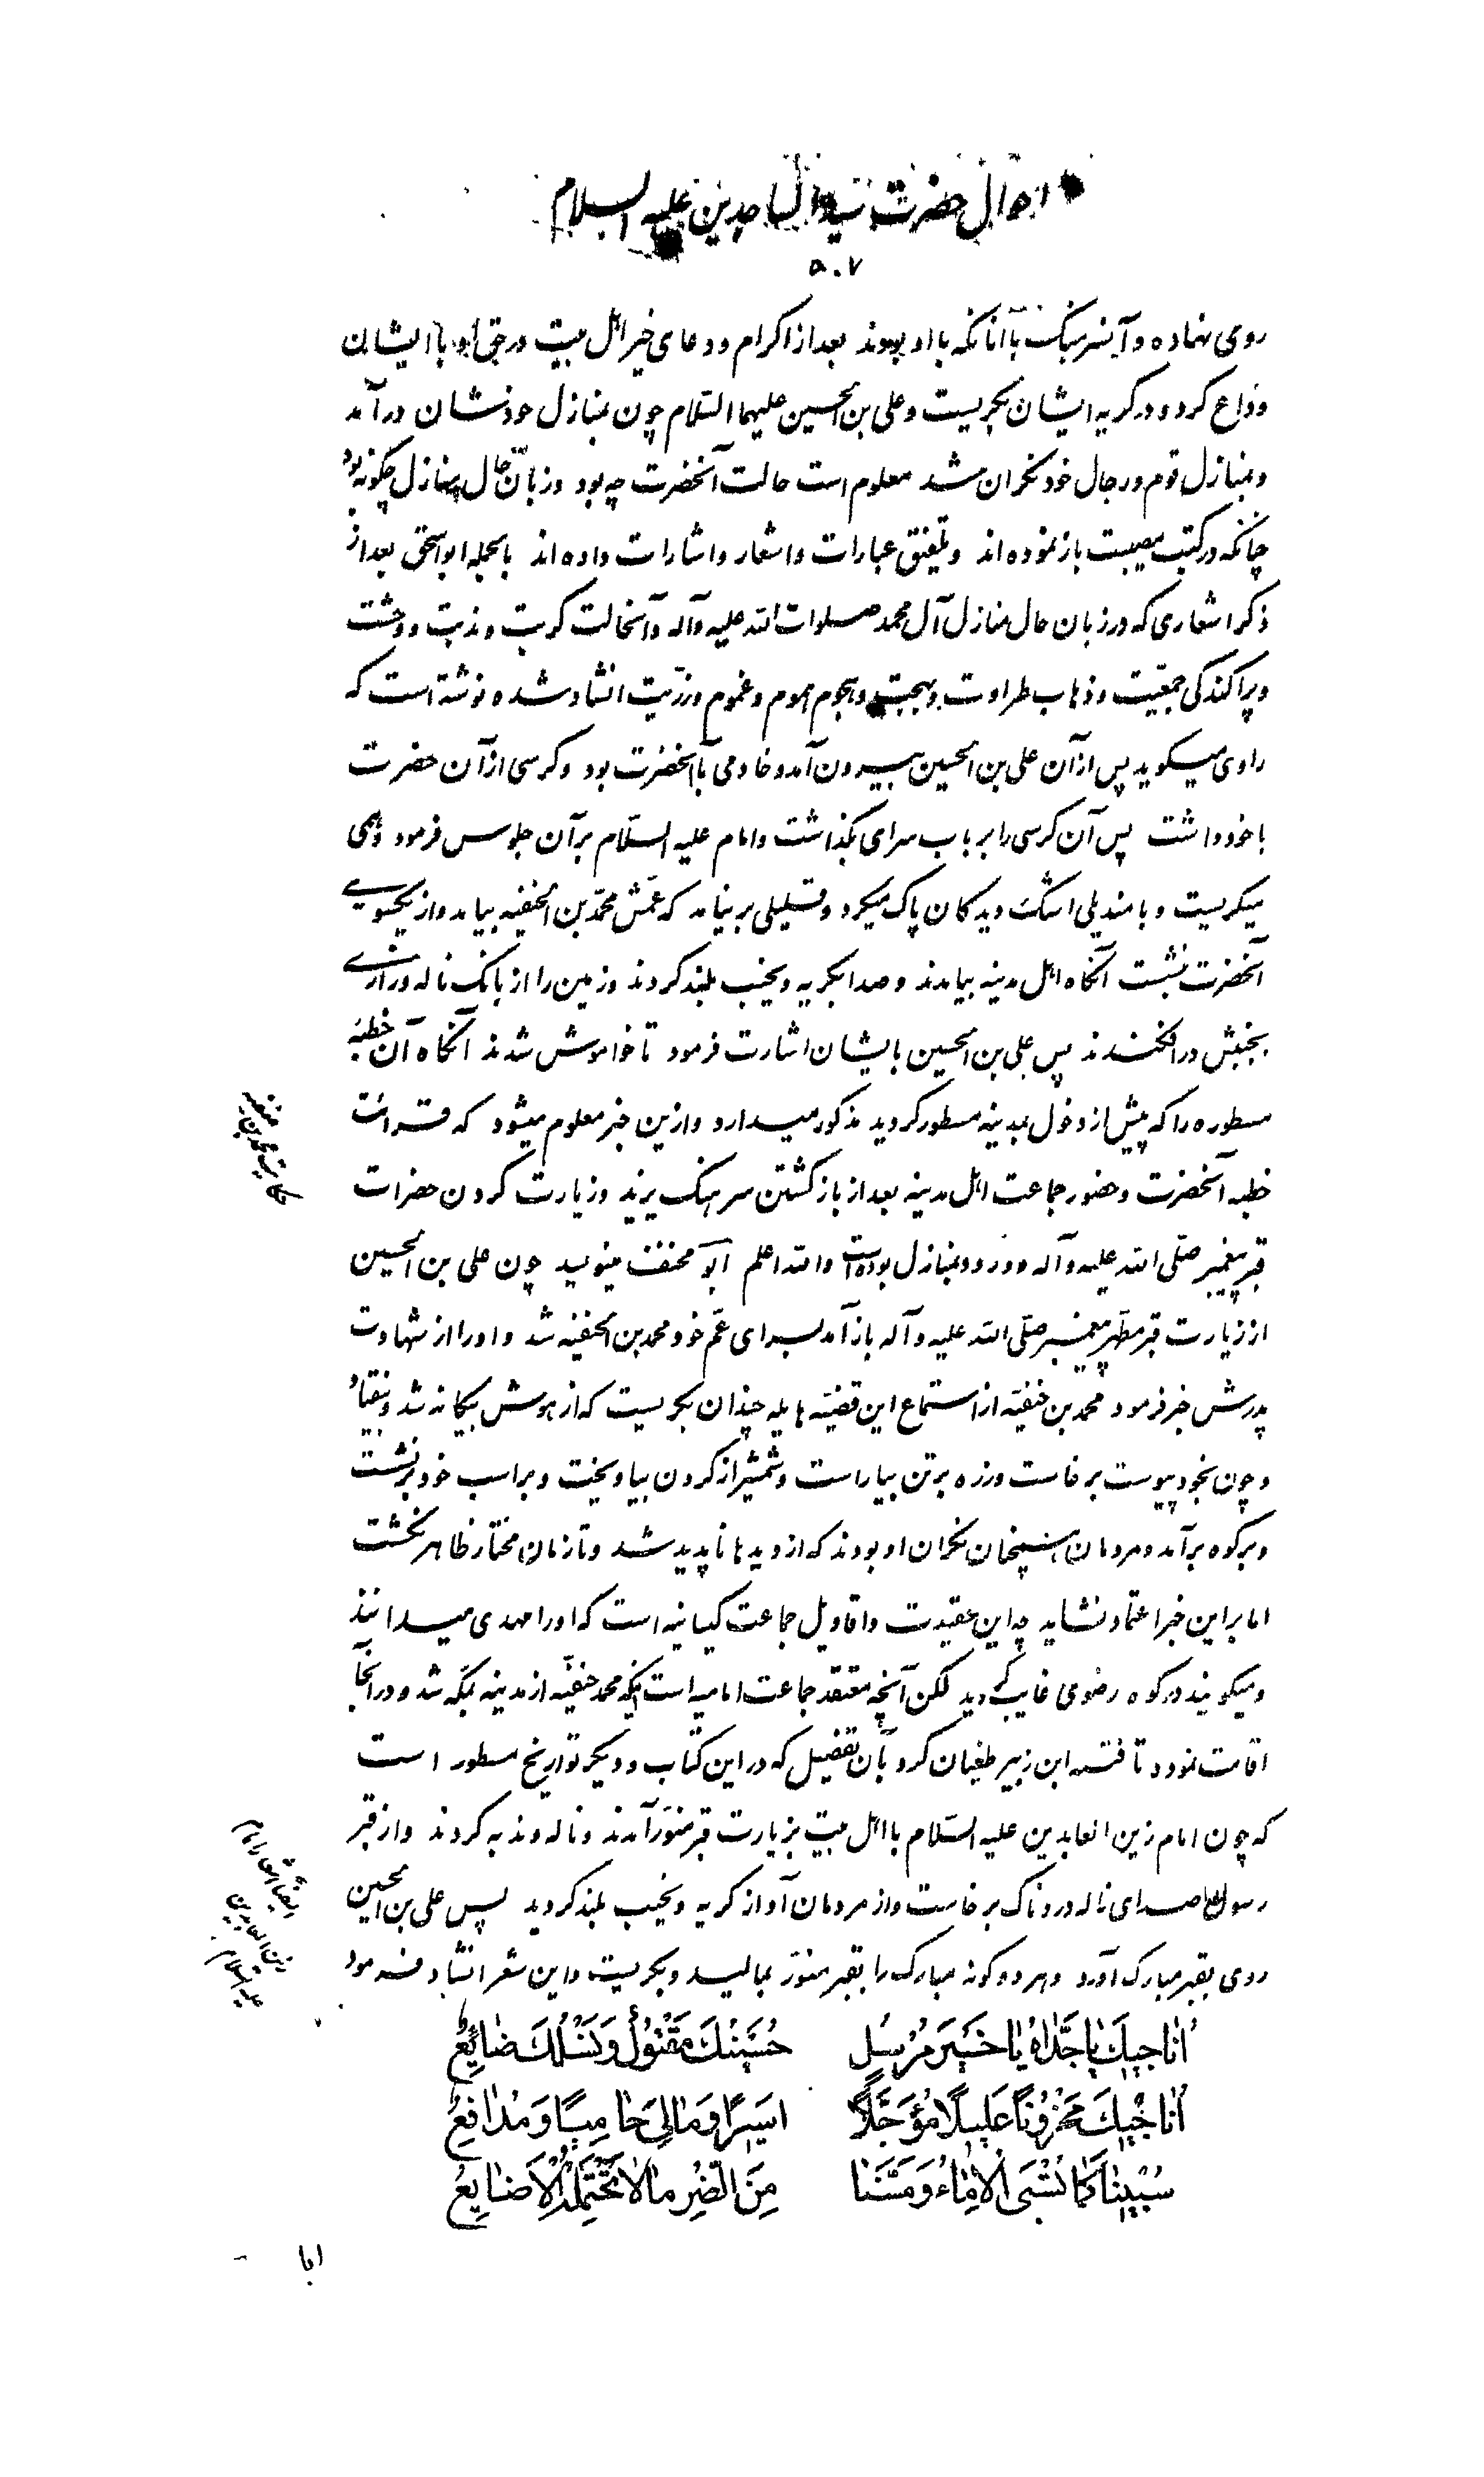 احوال حضرت سید الساجدین علیه السلام
۵۰۷
روی نهاده و آنسرهنک با آنانکه با او بودند بعد از اکرام و دعای خیر اهل بیت در حق او با ایشان
وداع کرد و در کریه ایشان بکریست و علی بن الحسین علیهما السلام چون بمنازل خودشان در آمد
و بمنازل قوم و رجال خود نکران شد معلوم است حالت آنحضرت چه بود و زبان حال منازل چکونه بود
چنانکه در کتب مصیبت باز نموده اند و تلفیق عبارات و اشعار و اشارات داده اند بالجمله ابو اسحق بعد از
ذکر اشعاری که در زبان حال منازل آل محمد صلوات الله علیه وآله و آنحالت کربت و ندبت و وحشت
و پراکندکی جمعیت و ذهاب طراوت و بهجت و هجوم هموم و غموم و رزیت انشاد شده نوشته است که
راوی میکوید پس از آن علی بن الحسین بیرون آمد و خادمی با آنحضرت بود و کرسی از آن حضرت
با خود داشت پس آن کرسی را بر باب سرای بکذاشت و امام علیه السلام بر آن جلوس فرمود و همی
میکریست و با مندیلی اشک دیدکان پاک میکرد و قلیلی بر نیامد که عمش محمد بن الحنفیه بیامد و از یکسوی
آنحضرت نشست آنکاه اهل مدینه بیامدند و صدا بکریه و نحیب بلند کردند و زمین را از بانک ناله و زاری
بجنبش در افکندند پس علی بن الحسین بایشان اشارت فرمود تا خاموش شدند آنکاه آن خطبه
مسطوره را که پیش از دخول بمدینه مسطور کردید مذکور میدارد و ازین خبر معلوم میشود که قرائت
خطبه آنحضرت و حضور جماعت اهل مدینه بعد از باز کشتن سرهنک یزید و زیارت کردن حضرات
قبر پیغمبر صلی الله علیه و آله و ورود بمنازل بوده است والله اعلم ابو مخنف مینویسد چون علی بن الحسین
از زیارت قبر مطهر پیغمبر صلی الله علیه و آله باز آمد بسرای عم خود محمد بن الحنفیه شد و او را از شهادت
پدرش خبر فرمود محمد بن حنفیه از استماع این قضیه هایله چندان بکریست که از هوش بیکانه شد و بیفتاد
و چون بخود پیوست برخاست و زره بر تن بیاراست و شمشیر از کردن بیاویخت و بر اسب خود برنشست
و بر کوه برآمد و مردمان همچنان نکران او بودند که از دیدها ناپدید شد و تا زمان مختار ظاهر نکشت
اما بر این خبر اعتماد نشاید چه این عقیدت و اقاویل جماعت کیسانیه است که او را مهدی میدانند
و میکویند در کوه رضوی غایب کردید لکن آنچه معتقد جماعت امامیه است اینکه محمد حنفیه از مدینه بمکه شد و در آنجا
اقامت نمود و تا فتنه ابن زبیر طغیان کرد بآن تفصیل که در این کتاب و دیکر تواریخ مسطور است
حکایت محمد بن حنفیه
که چون امام زین العابدین علیه السلام با اهل بیت بزیارت قبر منور آمدند و ناله و ندبه کردند و از قبر
رسول الله صدای ناله دردناک برخاست و از مردمان آواز کریه و نحیب بلند کردید پس علی بن الحسین
روی بقبر مبارک آورد و هر دو کونه مبارک را بقبر منور بمالید و بکریست و این شعر انشاد فرمود
اشعار امام زین العابدین علیه السلام
اُناجیكَ یا جَدّاهُ یا خَیرَ مُرْسَلٍ حُسَیْنُكَ مَقْتُولٌ وَنَسْلُكَ ضایِعُ
اُناجیكَ مَحْزُوناً عَلیلاً مُؤَجَّلاً اسیراً وَمالِیَ حامِیاً وَمُدافِعُ
سُبینا كَما تُسْبَی الْاِماءُ وَمَسَّنا مِنَ الضُّرِّ مالا تَحْتَمِلْهُ الْاَضایِعُ
ایا